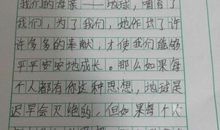 我们的母亲——地球,哺育了
我们,为了我们,她作出了许
许多多的奉献,才使我们能够
平平安安地成长。那么如果每
个人都有你这种思想,地球是
迟早会灭绝的,但如果每个人